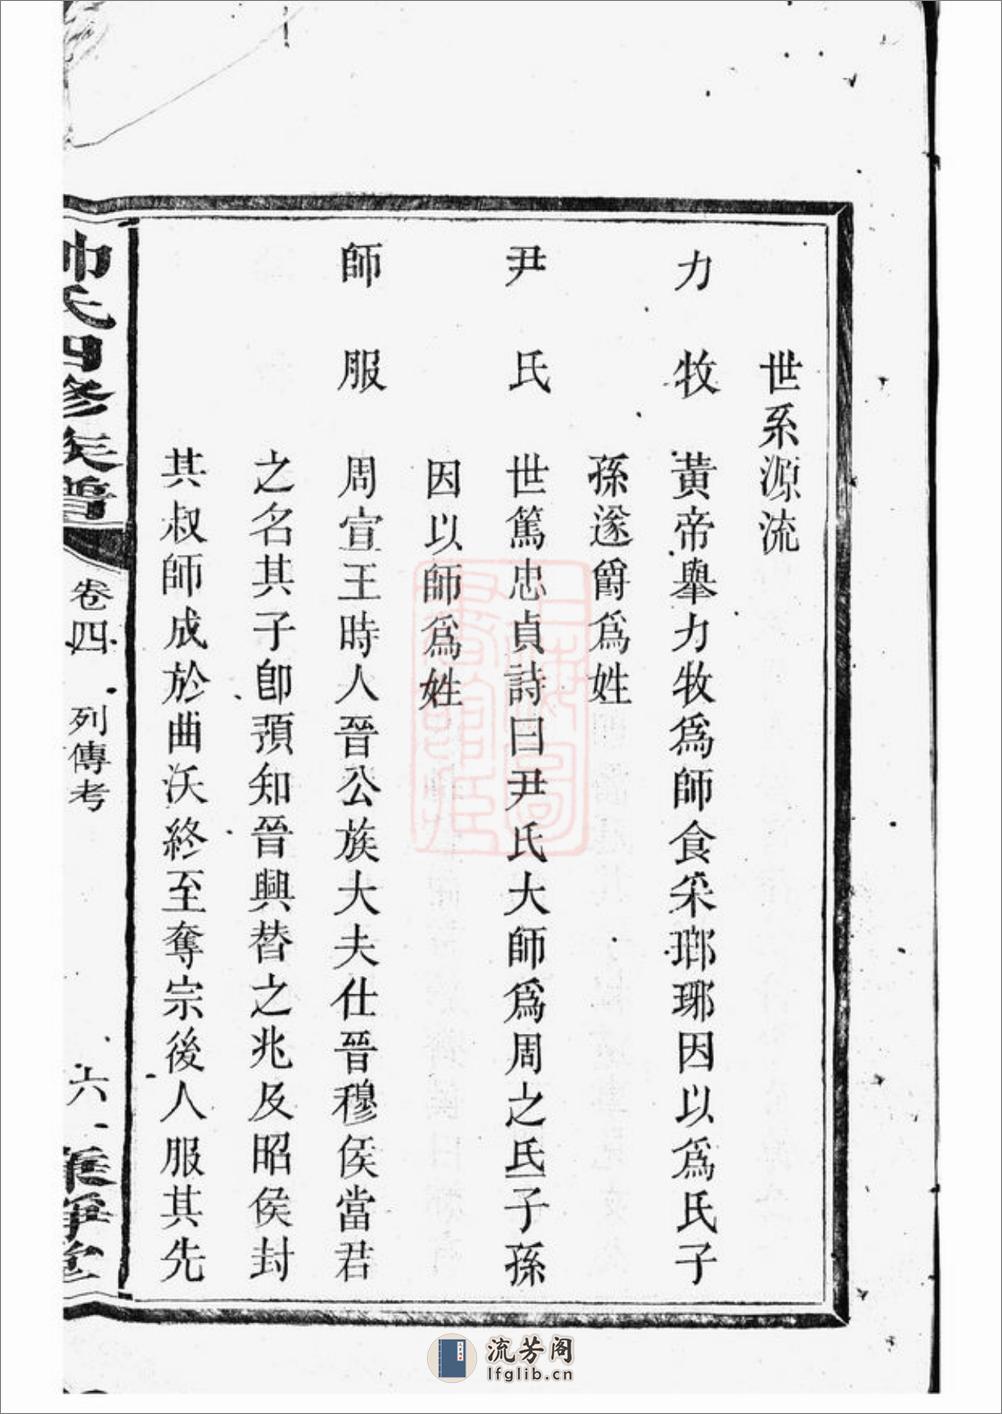 世系源流
力牧 黃帝舉力牧爲師食采瑯琊因以爲氏子
孫遂爵爲姓
尹氏 世篤忠貞詩曰尹氏大師爲周之氐子孫
因以師爲姓
師服 周宣王時人晉公族大夫仕晉穆侯當君
之名其子卽預知晉興替之兆及昭侯封
其叔師成於曲沃終至奪宗後人服其先
帥氏四修族譜 卷四 列傳考 六
流芳阁
lfglib.cn